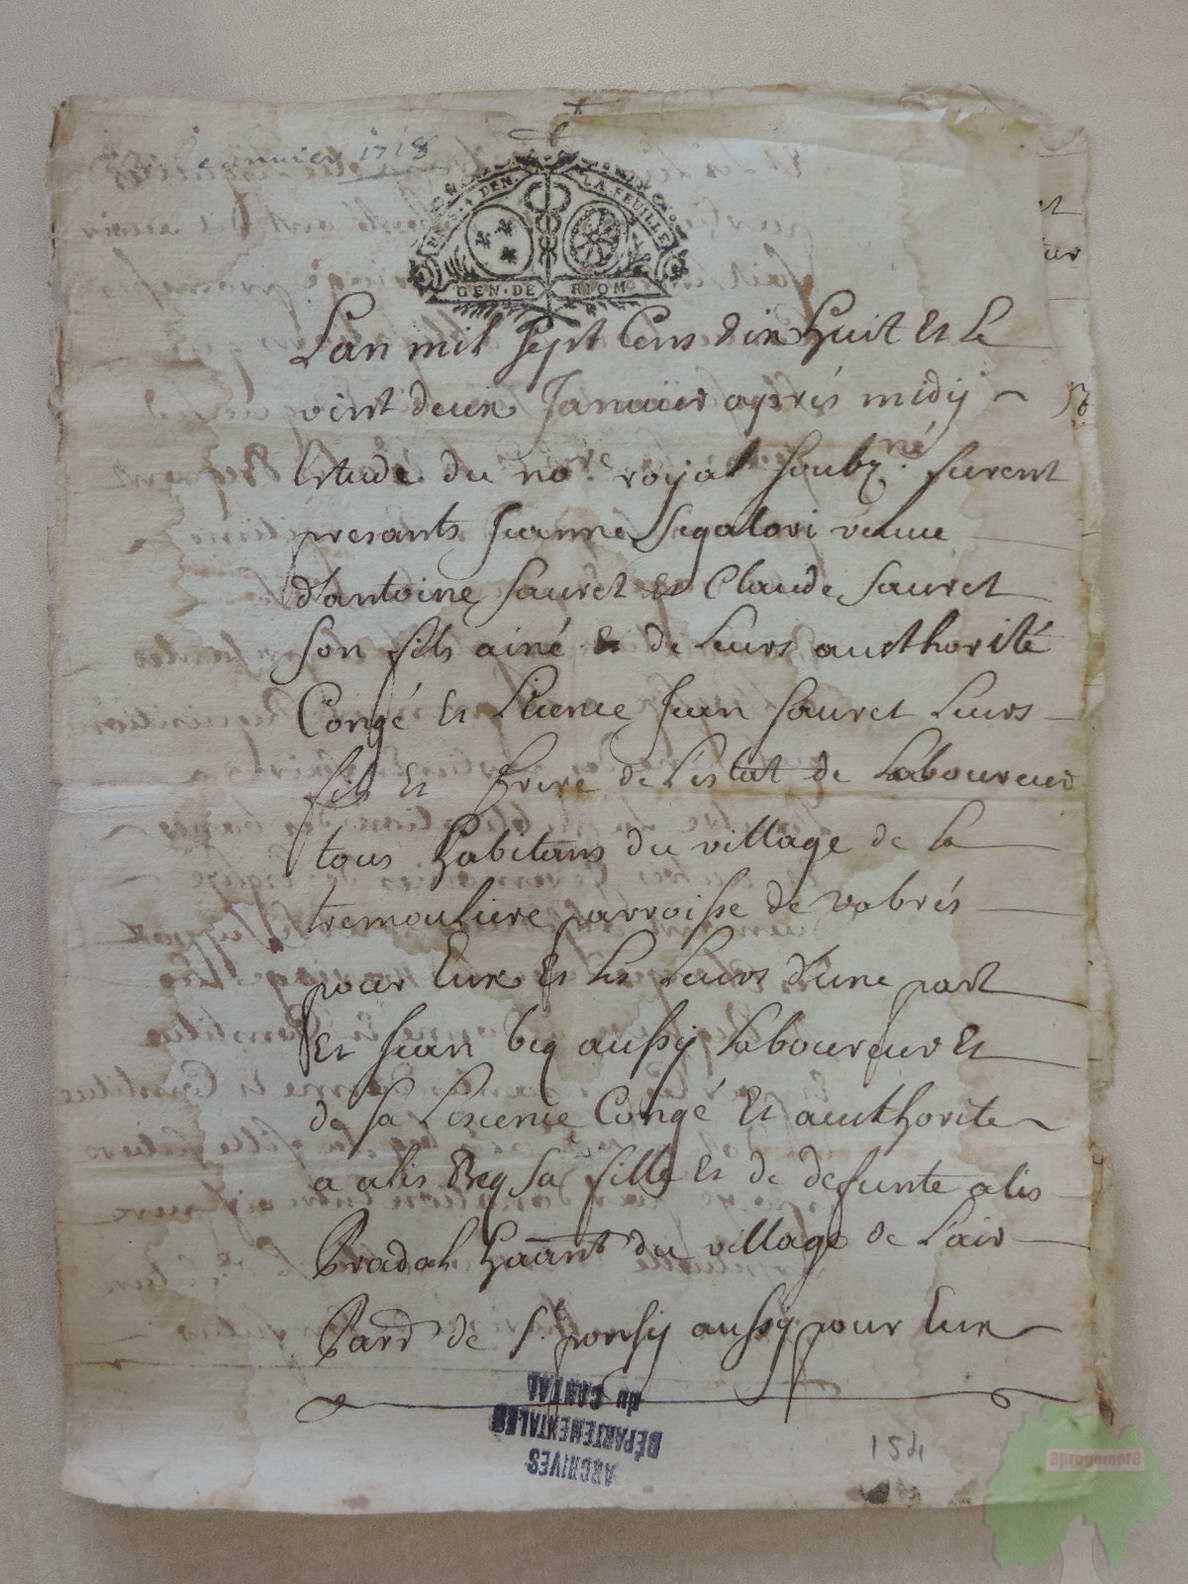 janvier 1718
DEN. LA FEUILLE
GEN. DE RIOM
Lan mil sept Cens dix huit Et Le
vint deux Januier apprés midy
Estude du no.re royal soubz.né furent
presants Jeanne Segalovi veuue
d'antoine sauret Et Claude sauret
son fils ainé & de Leurs aucthorité
Congé Et Licence Jean sauret Leurs
fils Et frere de L'estat de Laboureur
tous habitans du village de La
tremouliere parroisse de vabrés
pour Eux Et les Leurs d'une part
Et Jean beq aussy Laboureur Et
de sa Liscence Congé Et aucthorite
a alis Beq sa fille Et de defunte alis
Pradal haant du village de Lair
Pard de St. ponsy aussy pour Eux
ARCHIVES
DÉPARTEMENTALES
DU CANTAL
154
aprogemere